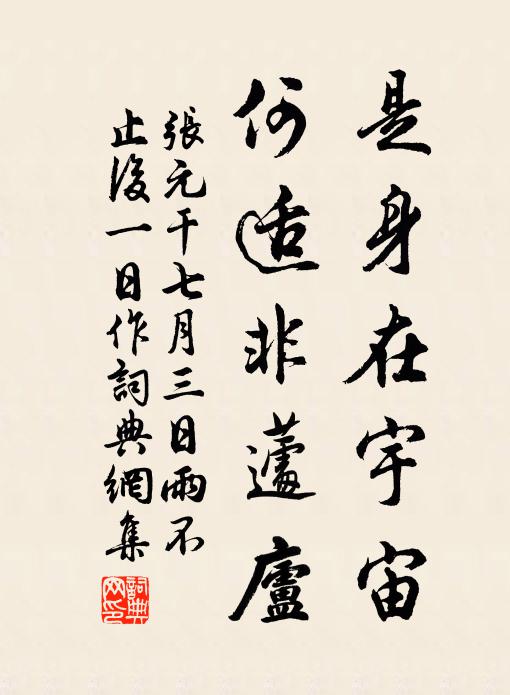 是身在宇宙
何适非蘧廬
張元干七月三日雨不
止後一日作詞典網集
詞典網印